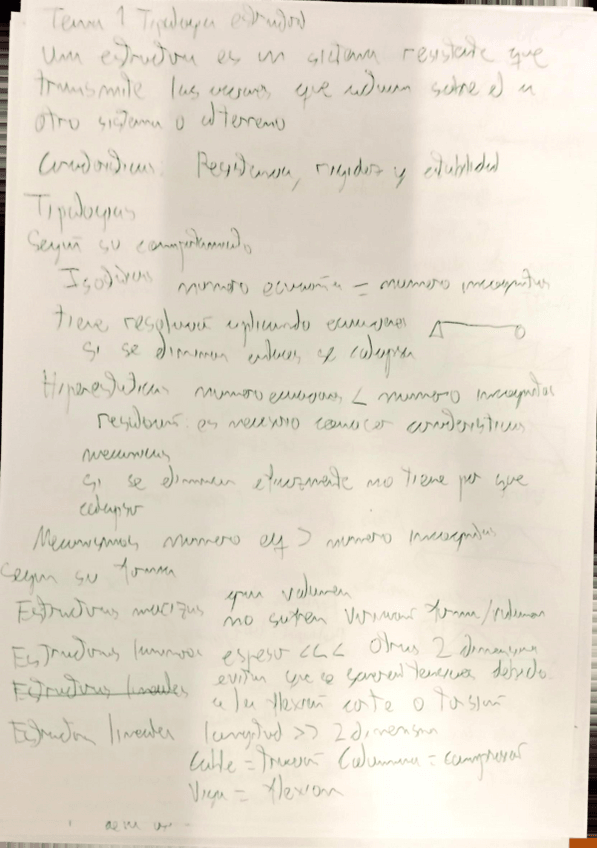 Tema 1 Tipologia estructural
Una estructura es un sistema resistente que
transmite las acciones que actuan sobre el a
otro sistema o al terreno
Caracteristicas: Resistencia, rigidez y estabilidad
Tipologias
Según su comportamiento
Isostáticas numero ecuación = numero incognitas
tiene resolución aplicando ecuaciones
si se eliminan enlaces se colapsa
Hiperestaticas numero ecuaciones < numero incognitas
resolución es necesario conocer caracteristicas
mecanicas
si se eliminan no tiene por que
colapso
Mecanismos numero > numero incognitas
Según su forma
gran volumen
Estructuras macizas no sufren variación forma/volumen
Estructuras laminares espesor <<< otras 2 dimensiones
Estructuras lineales evitan que se generen tensiones debido
a la flexión corte o torsión
Estructura lineales longitud >> 2 dimension
Cable = tracción Columna = compresión
Viga = flexion